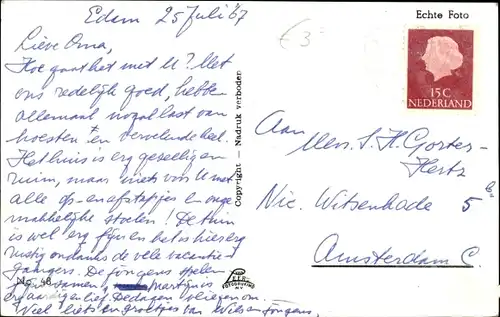 Edam 25 Juli '67
Lieve Oma,
Hoe gaat het met U? Met
ons redelijk goed, hebben
allemaal nogal last van
hoesten en vervelende keel.
Het huis is erg gezellig en
ruim, maar niets voor U met
alle op- en afstapjes en onge-
makkelijke stoelen! De tuin
is wel erg fijn en het is hier erg
rustig ondanks de vele vacantie-
gangers. De jongens spelen
samen, Martijn is
erg aardig en lief. De dagen vliegen om.
Veel liefs en groetjes van Wil en Jongens.
No. 48
Copyright — Nadruk verboden
Echte Foto
15C
NEDERLAND
Aan
Mevr. S. H. Gorter-
Hertz
Nic. Witsenkade 5
Amsterdam C.